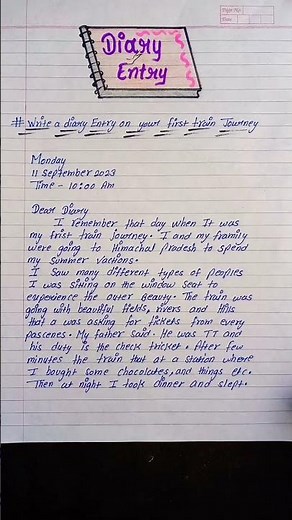 Diary
Entry
# Write a diary Entry on your first train Journey
Monday
11 September 2023
Time - 10:00 Am
Dear Diary
I remember that day when It was
my frist train journey. I and my framily
were going to Himachal pradesh to spend
my Summer vactions.
I Saw many different types of peoples
I was siting on the window seat to
experience the outer Beauty. The train was
going with beautiful fields, rivers and Hills
that a was asking for tickets from every
pascenes. My father said. He was TT and
his duty is the check tricket. After few
minutes the train that at a station where
I bought some chocolates, and things etc.
Then at night I took dinner and slept.